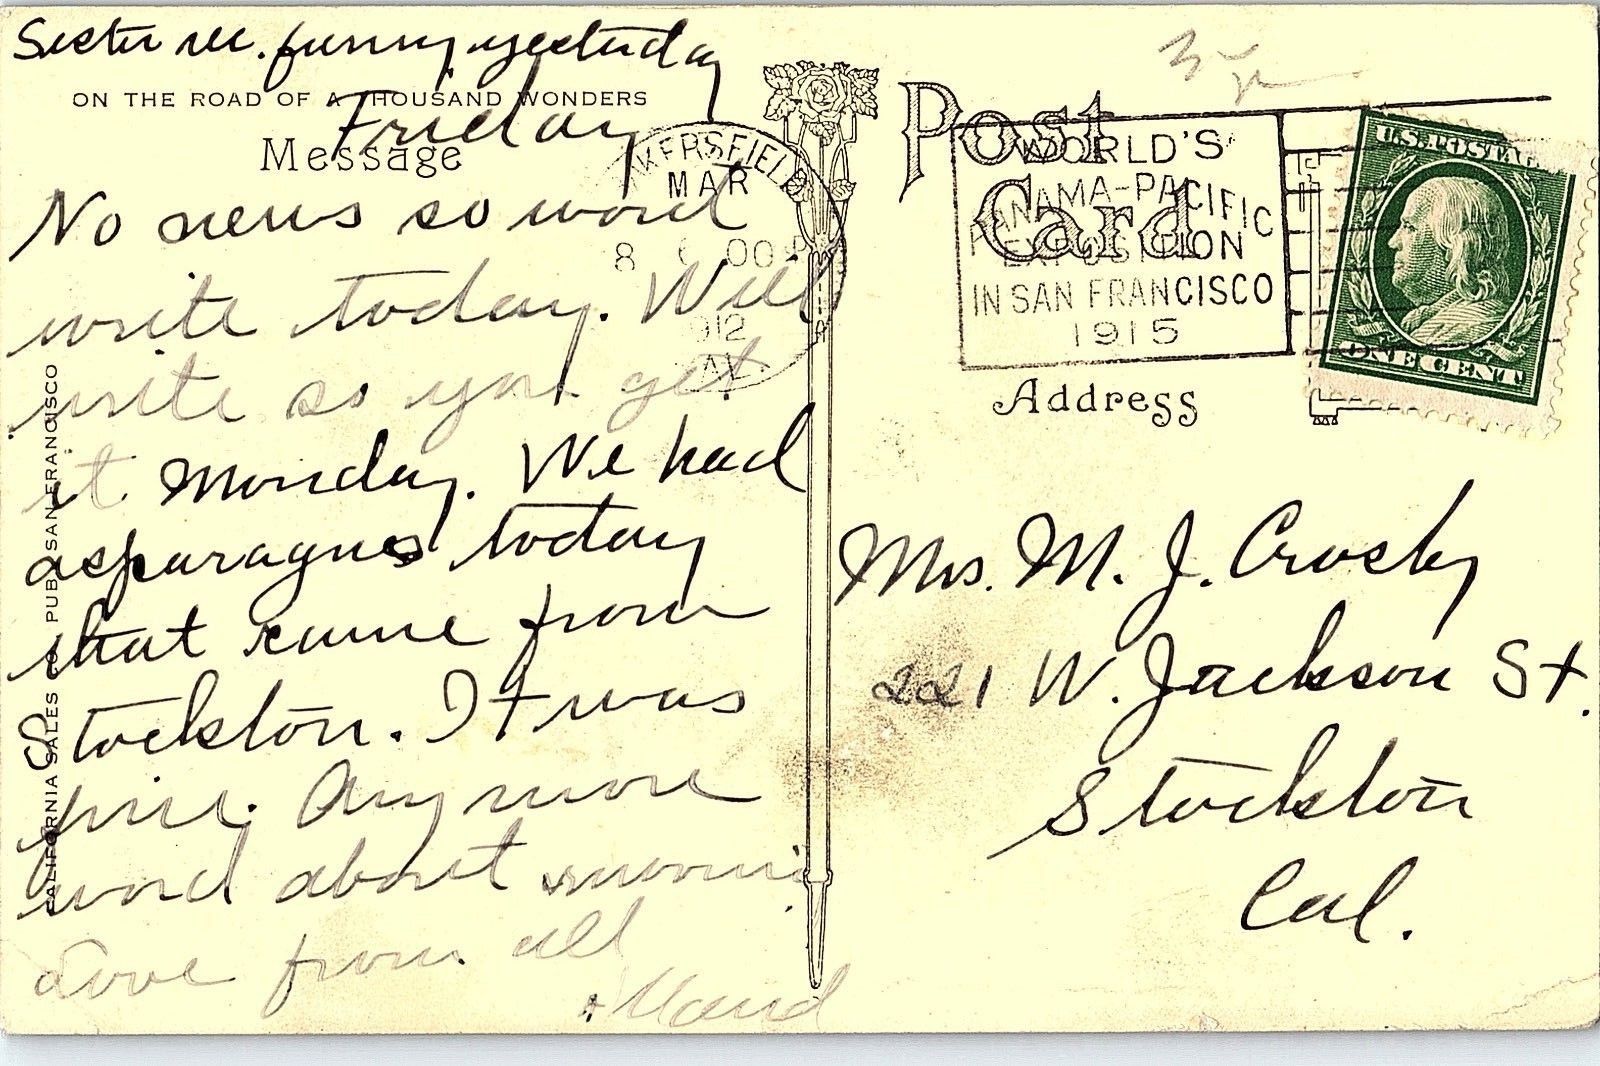 Sister rec. funny yesterday
ON THE ROAD OF A THOUSAND WONDERS
Friday
Message
No news so wont
write today. Will
write so you get
it Monday. We had
asparagus today
that came from
Stockton. It was
fine. Any more
word about
Love from all
Maud
CALIFORNIA SALES CO PUB. SAN FRANCISCO
AKERSFIELD
MAR
8 00 P
912
Post Card
WORLD'S
PANAMA-PACIFIC
EXPOSITION
IN SAN FRANCISCO
1915
U.S. POSTAGE
ONE CENT
Address
Mrs. M. J. Crosby
221 W. Jackson St.
Stockton
Cal.